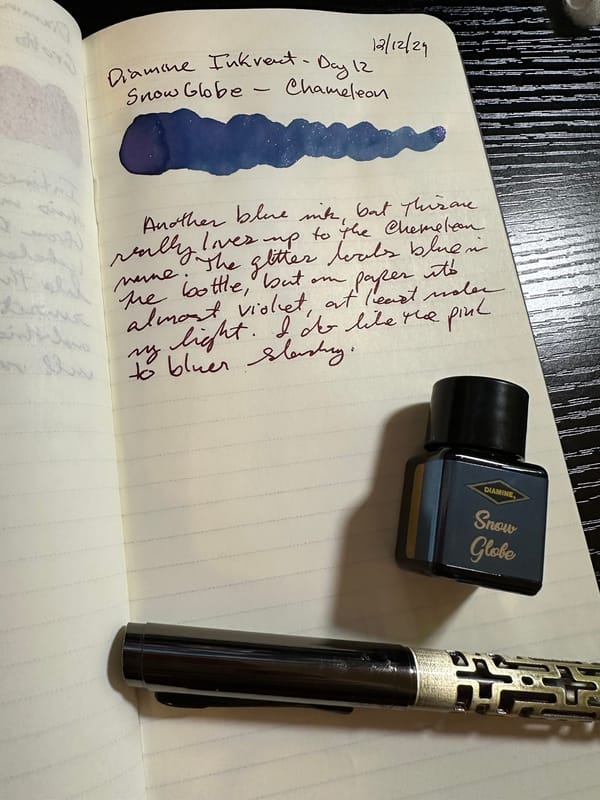 12/12/24
Diamine Inkvent - Day 12
Snow Globe - Chameleon
Another blue ink, but this one
really lives up to the Chameleon
name. The glitter looks blue in
the bottle, but on paper its
almost violet, at least under
my light. I do like the pink
to bluer shading.
DIAMINE
Snow
Globe